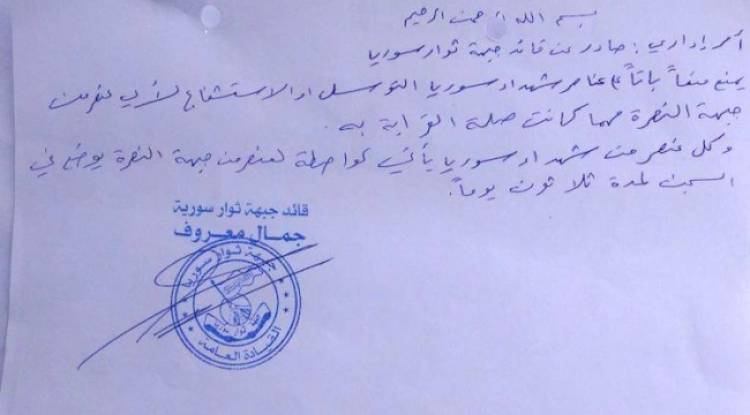 بسم الله الرحمن الرحيم
أمر إداري: صادر عن قائد جبهة ثوار سوريا
يمنع منعاً باتاً عناصر شهداء سوريا التوسل او الاستشفاع لأي عنصر من
جبهة النصرة مهما كانت صلة القرابة به.
وكل عنصر من شهداء سوريا يأتي كواسطة لعنصر من جبهة النصرة يوضع في
السجن لمدة ثلاثون يوماً.
قائد جبهة ثوار سورية
جمال معروف
جبهة ثوار سوريا
جبهة ثوار سوريا
القيادة العامة